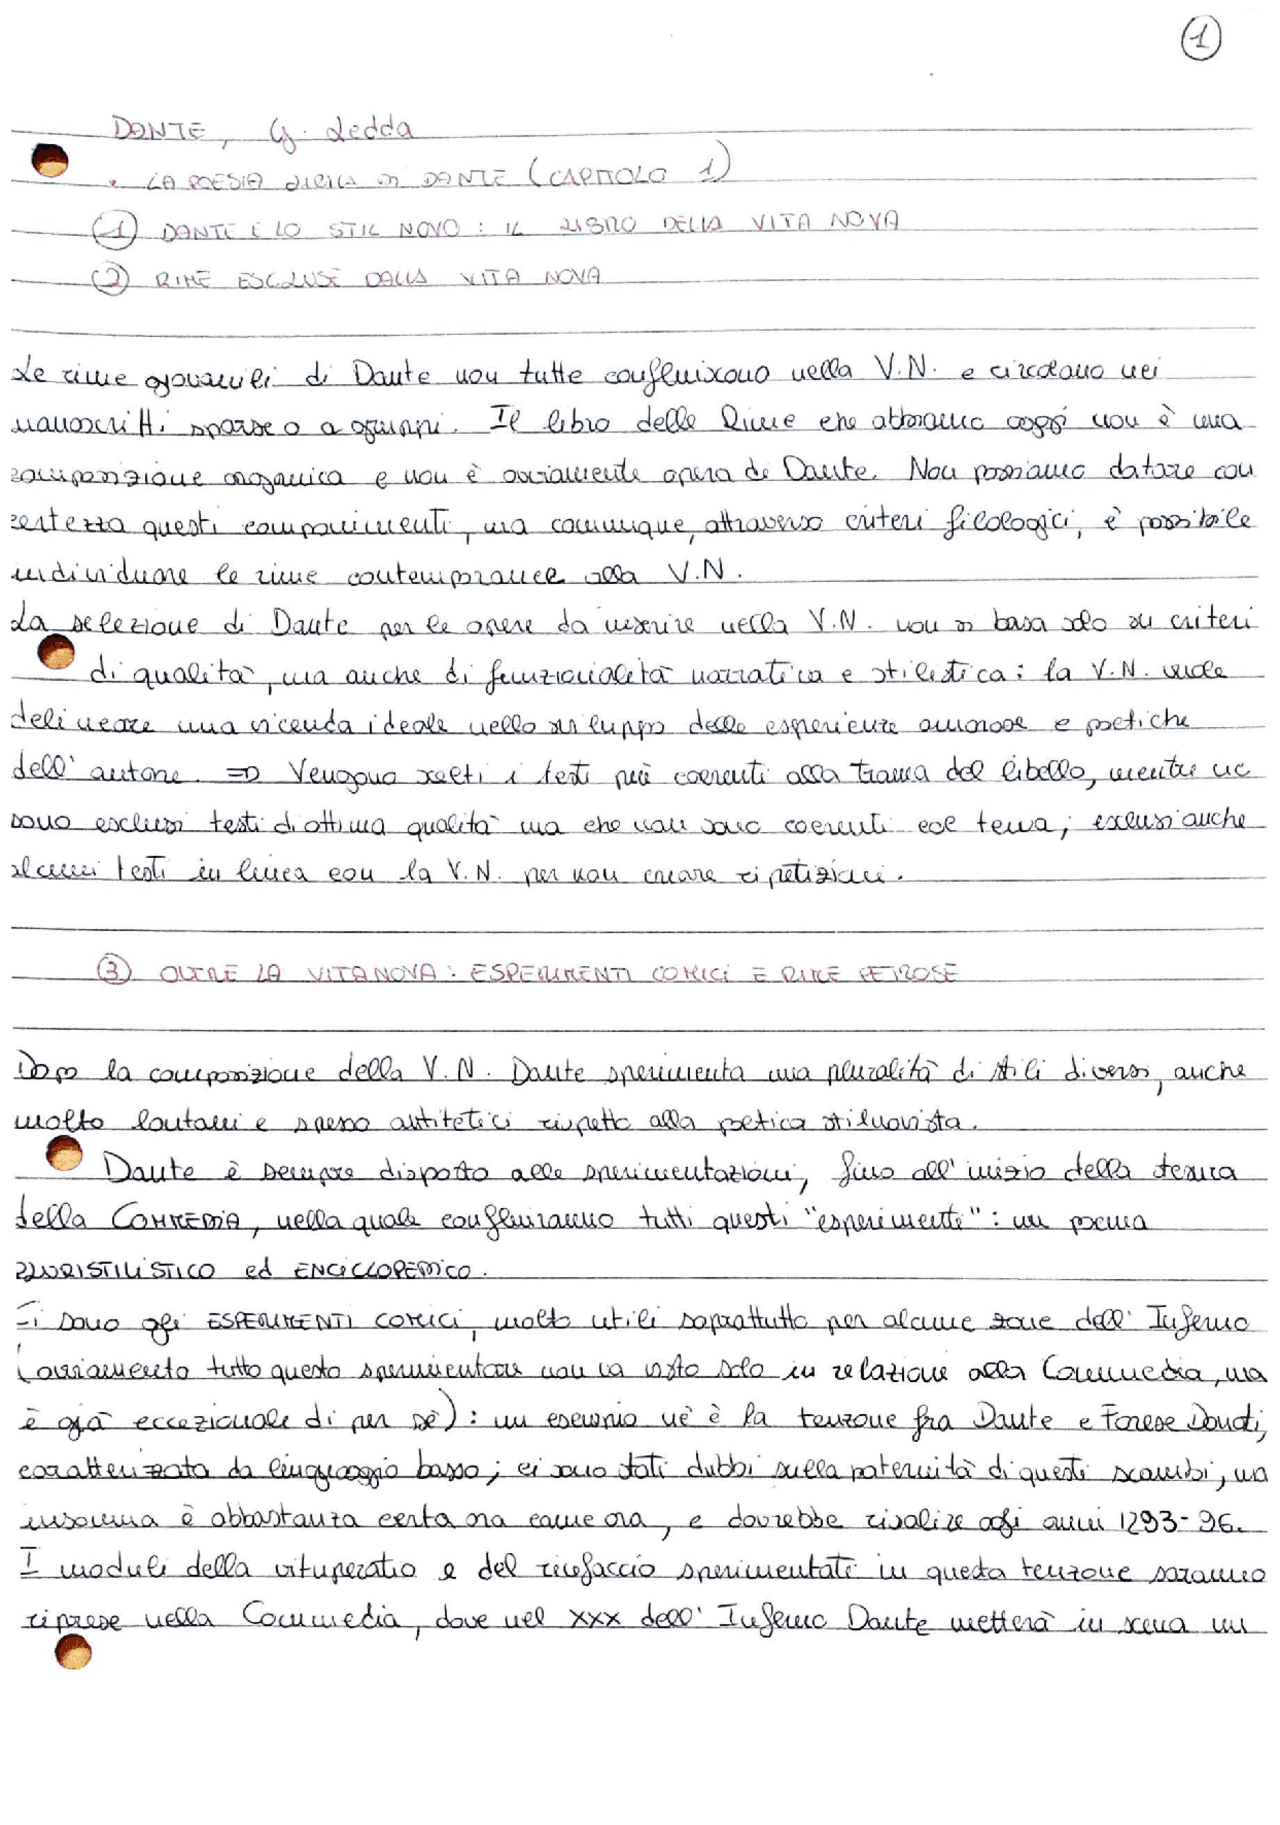 1
DANTE, G. Ledda
• LA POESIA LIRICA DI DANTE (CAPITOLO 1)
1 DANTE E LO STIL NOVO: IL LIBRO DELLA VITA NOVA
2 RIME ESCLUSE DALLA VITA NOVA
Le rime giovanili di Dante non tutte confluiscono nella V.N. e circolano nei
manoscritti sparse o a gruppi. Il libro delle Rime che abbiamo oggi non è una
composizione organica e non è ovviamente opera di Dante. Non possiamo datare con
certezza questi componimenti, ma comunque, attraverso criteri filologici, è possibile
individuare le rime contemporanee alla V.N.
La selezione di Dante per le opere da inserire nella V.N. non si basa solo su criteri
di qualità, ma anche di funzionalità narrativa e stilistica: la V.N. vuole
delineare una vicenda ideale nello sviluppo delle esperienze amorose e poetiche
dell'autore. => Vengono scelti i testi più coerenti alla trama del libello, mentre ne
sono esclusi testi di ottima qualità ma che non sono coerenti col tema; esclusi anche
alcuni testi in linea con la V.N. per non creare ripetizioni.
3 OLTRE LA VITA NOVA: ESPERIMENTI COMICI E RIME PETROSE
Dopo la composizione della V.N. Dante sperimenta una pluralità di stili diversi, anche
molto lontani e spesso antitetici rispetto alla poetica stilnovista.
Dante è sempre disposto alle sperimentazioni, fino all'inizio della stesura
della COMMEDIA, nella quale confluiranno tutti questi "esperimenti": un poema
PLURISTILISTICO ed ENCICLOPEDICO.
Ci sono gli ESPERIMENTI COMICI, molto utili soprattutto per alcune zone dell'Inferno
(ovviamente tutto questo sperimentare non va visto solo in relazione alla Commedia, ma
è già eccezionale di per sè): un esempio ne è la tenzone fra Dante e Forese Donati,
caratterizzata da linguaggio basso; ci sono stati dubbi sulla paternità di questi scambi, ma
insomma è abbastanza certa ora come ora, e dovrebbe risalire agli anni 1293-96.
I moduli della vituperatio e del rinfaccio sperimentati in questa tenzone saranno
riprese nella Commedia, dove nel XXX dell'Inferno Dante metterà in scena un